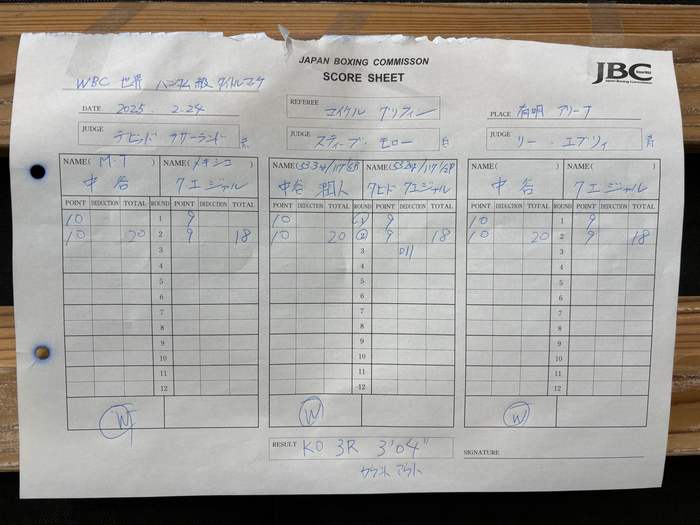 JAPAN BOXING COMMISSON
SCORE SHEET
JBC
WBC 世界 バンタム級 タイトルマッチ
DATE 2025 2.24
REFEREE マイケル グリフィン
PLACE 有明 アリーナ
JUDGE デビッド サザーランド
JUDGE スティーブ・モロー 白
JUDGE リー・エブリィ 青
NAME( M.T ) NAME( メキシコ )
中谷 クエジャル
NAME( NAME(
中谷 潤人 ダビド クエジャル
NAME( ) NAME( )
中谷 クエジャル
POINT DEDUCTION TOTAL ROUND POINT DEDUCTION TOTAL
10 1 9
10 20 2 9 18
3
4
5
6
7
8
9
10
11
12
W
POINT DEDUCTION TOTAL ROUND POINT DEDUCTION TOTAL
10 1 9
10 20 2 9 18
3
4
5
6
7
8
9
10
11
12
W
POINT DEDUCTION TOTAL ROUND POINT DEDUCTION TOTAL
10 1 9
10 20 2 9 18
3
4
5
6
7
8
9
10
11
12
W
RESULT KO 3R 3'04"
カウント アウト
SIGNATURE